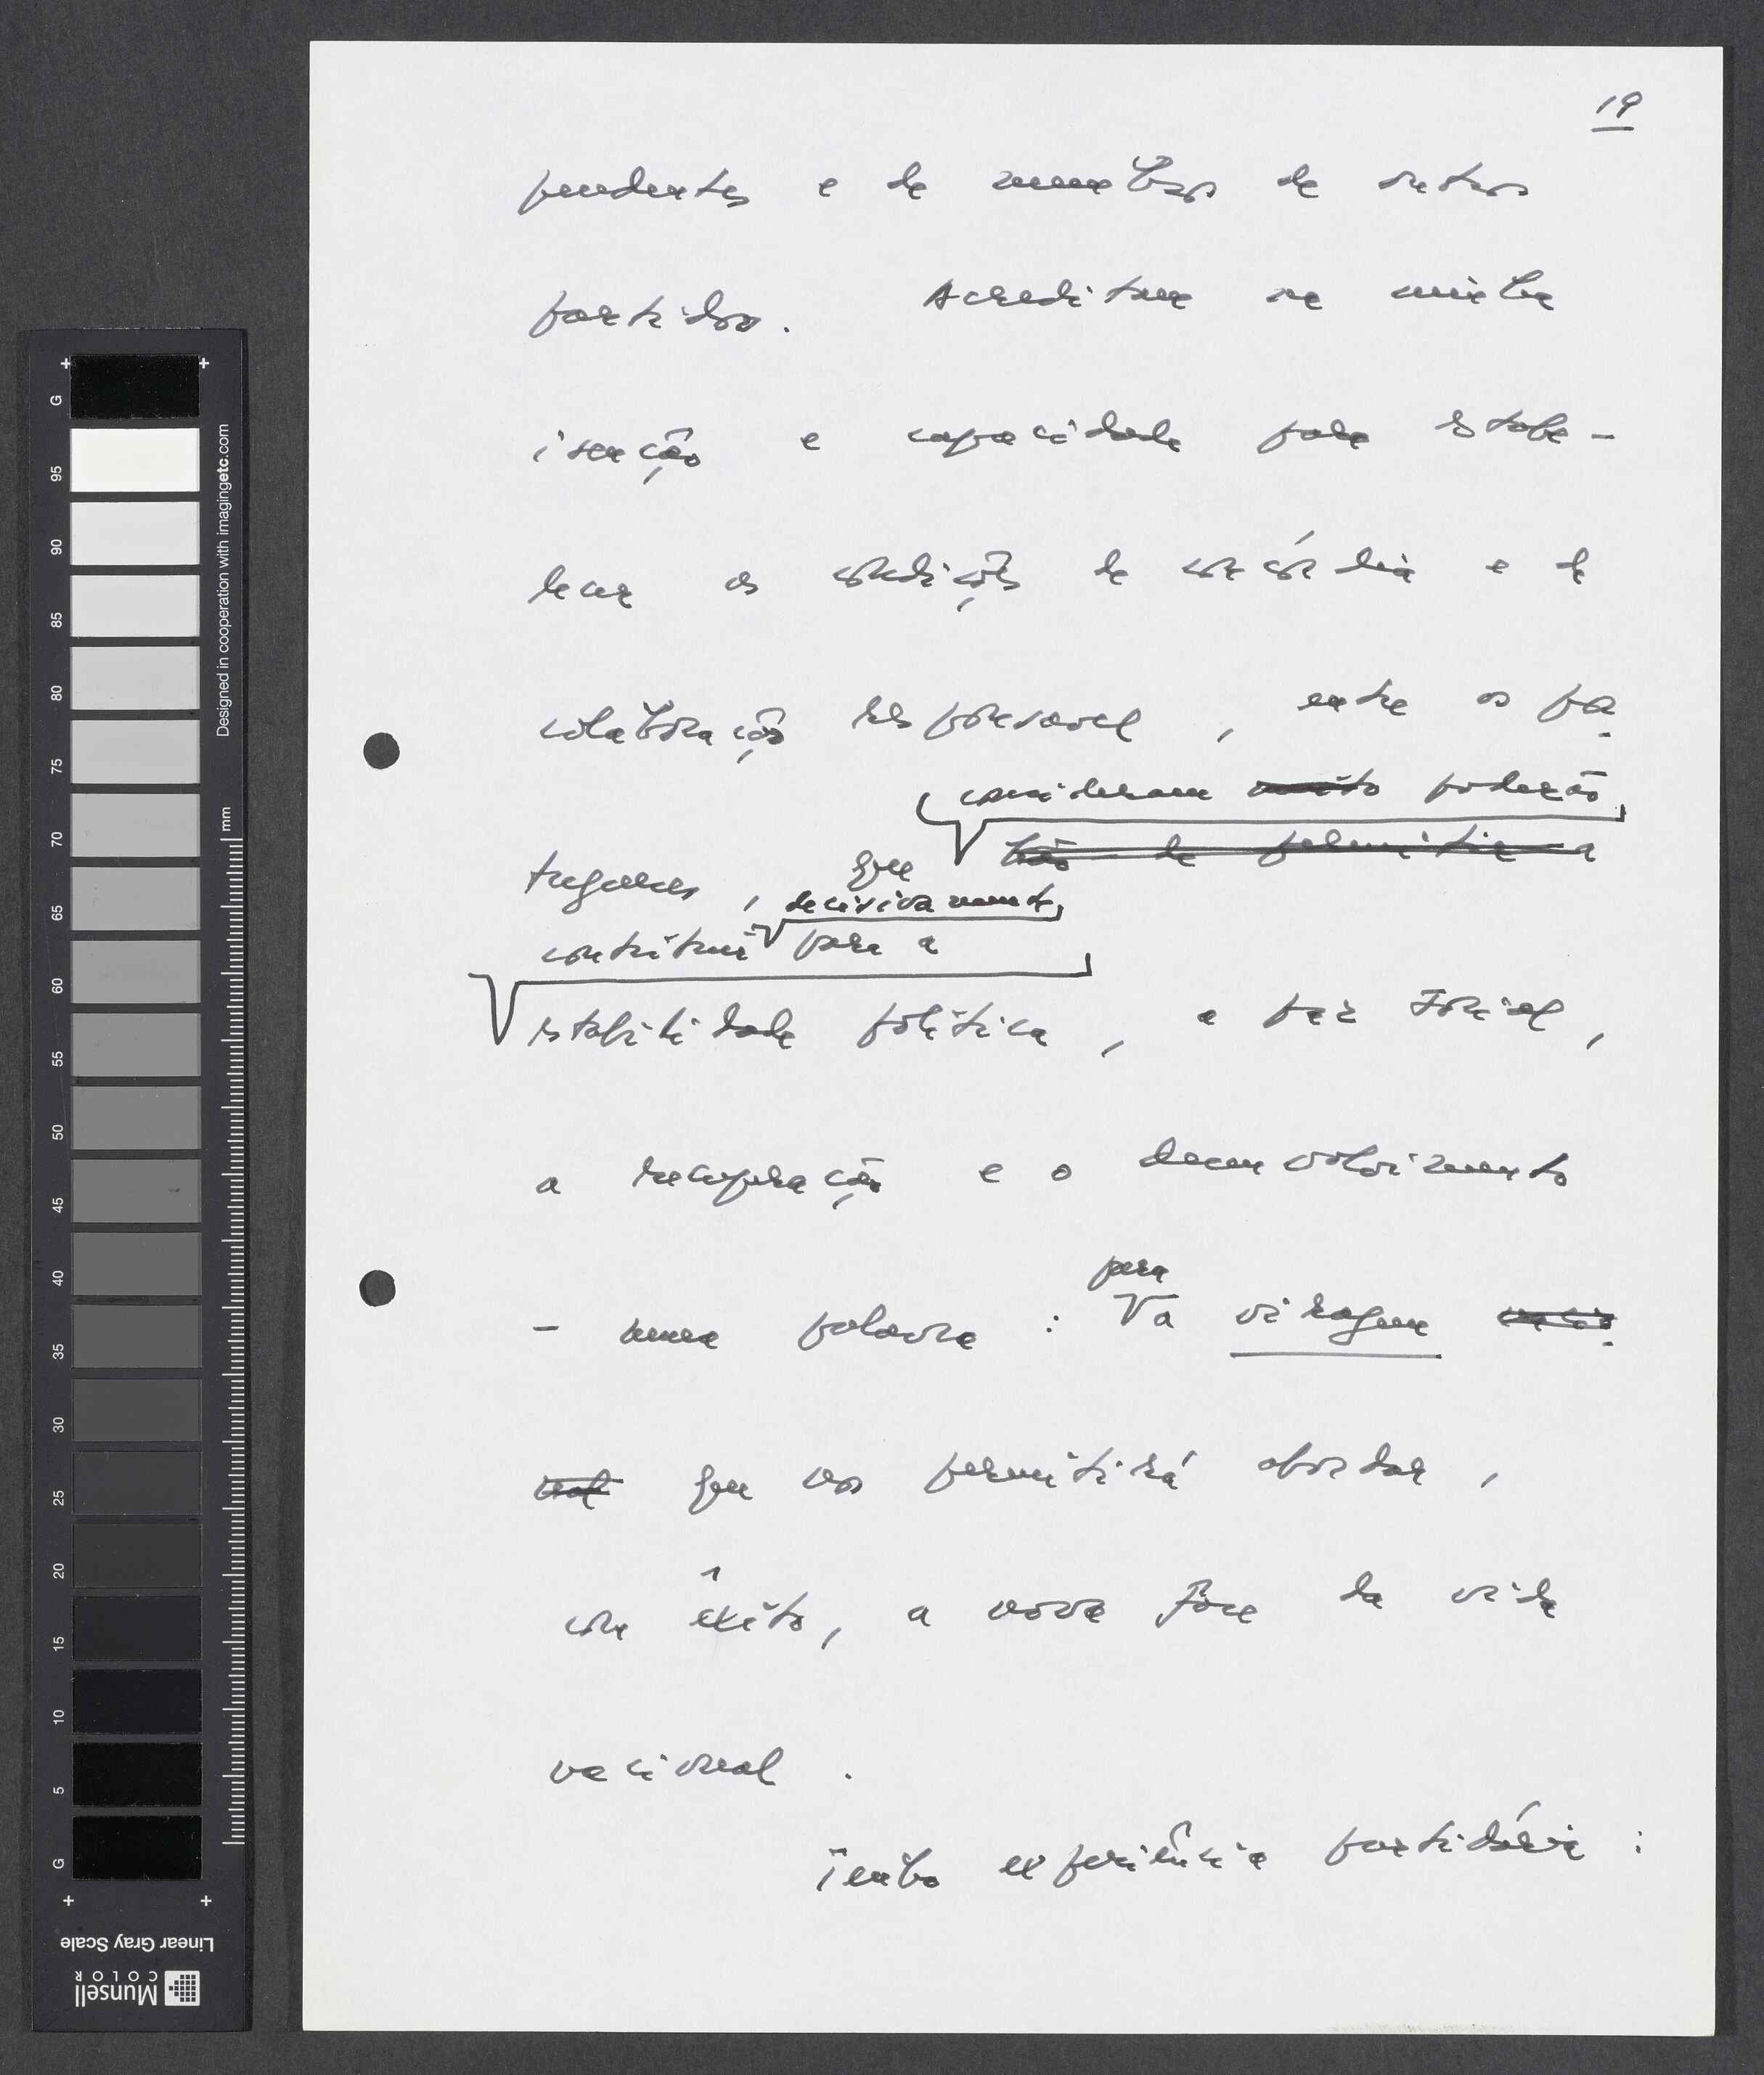 19
pendentes e de membros de outros
partidos. Acreditam na minha
isenção e capacidade para estabe-
lecer as condições de concórdia e de
colaboração responsável, entre os por-
consideram muito poderão
tugueses, que hão de permitir a
decisivamente
contribuir para a
estabilidade política, a paz social,
a recuperação e o desenvolvimento
para
- numa palavra: a viragem nacio-
nal que nos permitirá abordar,
com êxito, a nova fase da vida
nacional.
Tenho experiência partidária:
G
95
90
85
80
75
70
65
60
55
50
45
40
35
30
25
20
15
10
5
G
mm
Designed in cooperation with imagingetc.com
Linear Gray Scale
Munsell
COLOR